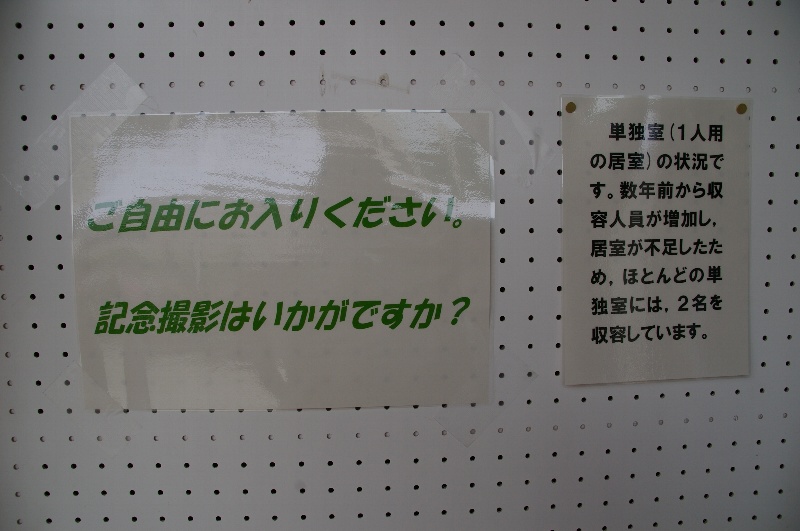 ご自由にお入りください。
記念撮影はいかがですか？
単独室(1人用
の居室)の状況で
す。数年前から収
容人員が増加し,
居室が不足したた
め,ほとんどの単
独室には,2名を
収容しています。